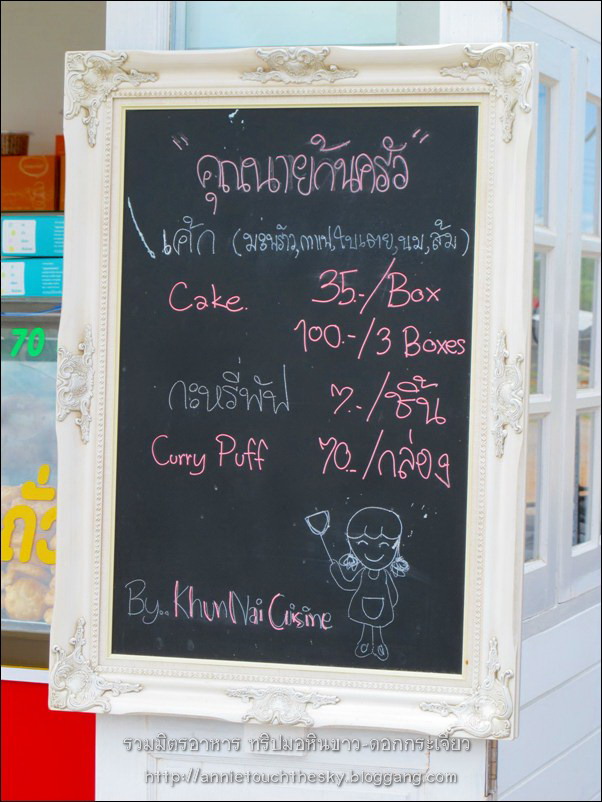 "คุณนายก้นครัว"
เค้ก (มะพร้าว,กาแฟ,ใบเตย,นม,ส้ม)
Cake. 35.-/Box
100.-/3 Boxes
กะหรี่พัฟ 7.-/ชิ้น
Curry Puff 70.-/กล่อง
By.. KhunNai Cuisine
70
ถั่ว
รวมมิตรอาหาร ทริปมอหินขาว-ดอกกระเจียว
http://annietouchthesky.bloggang.com